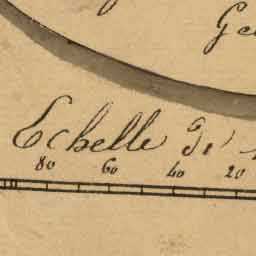 Ge
Echelle d'
80 60 40 20